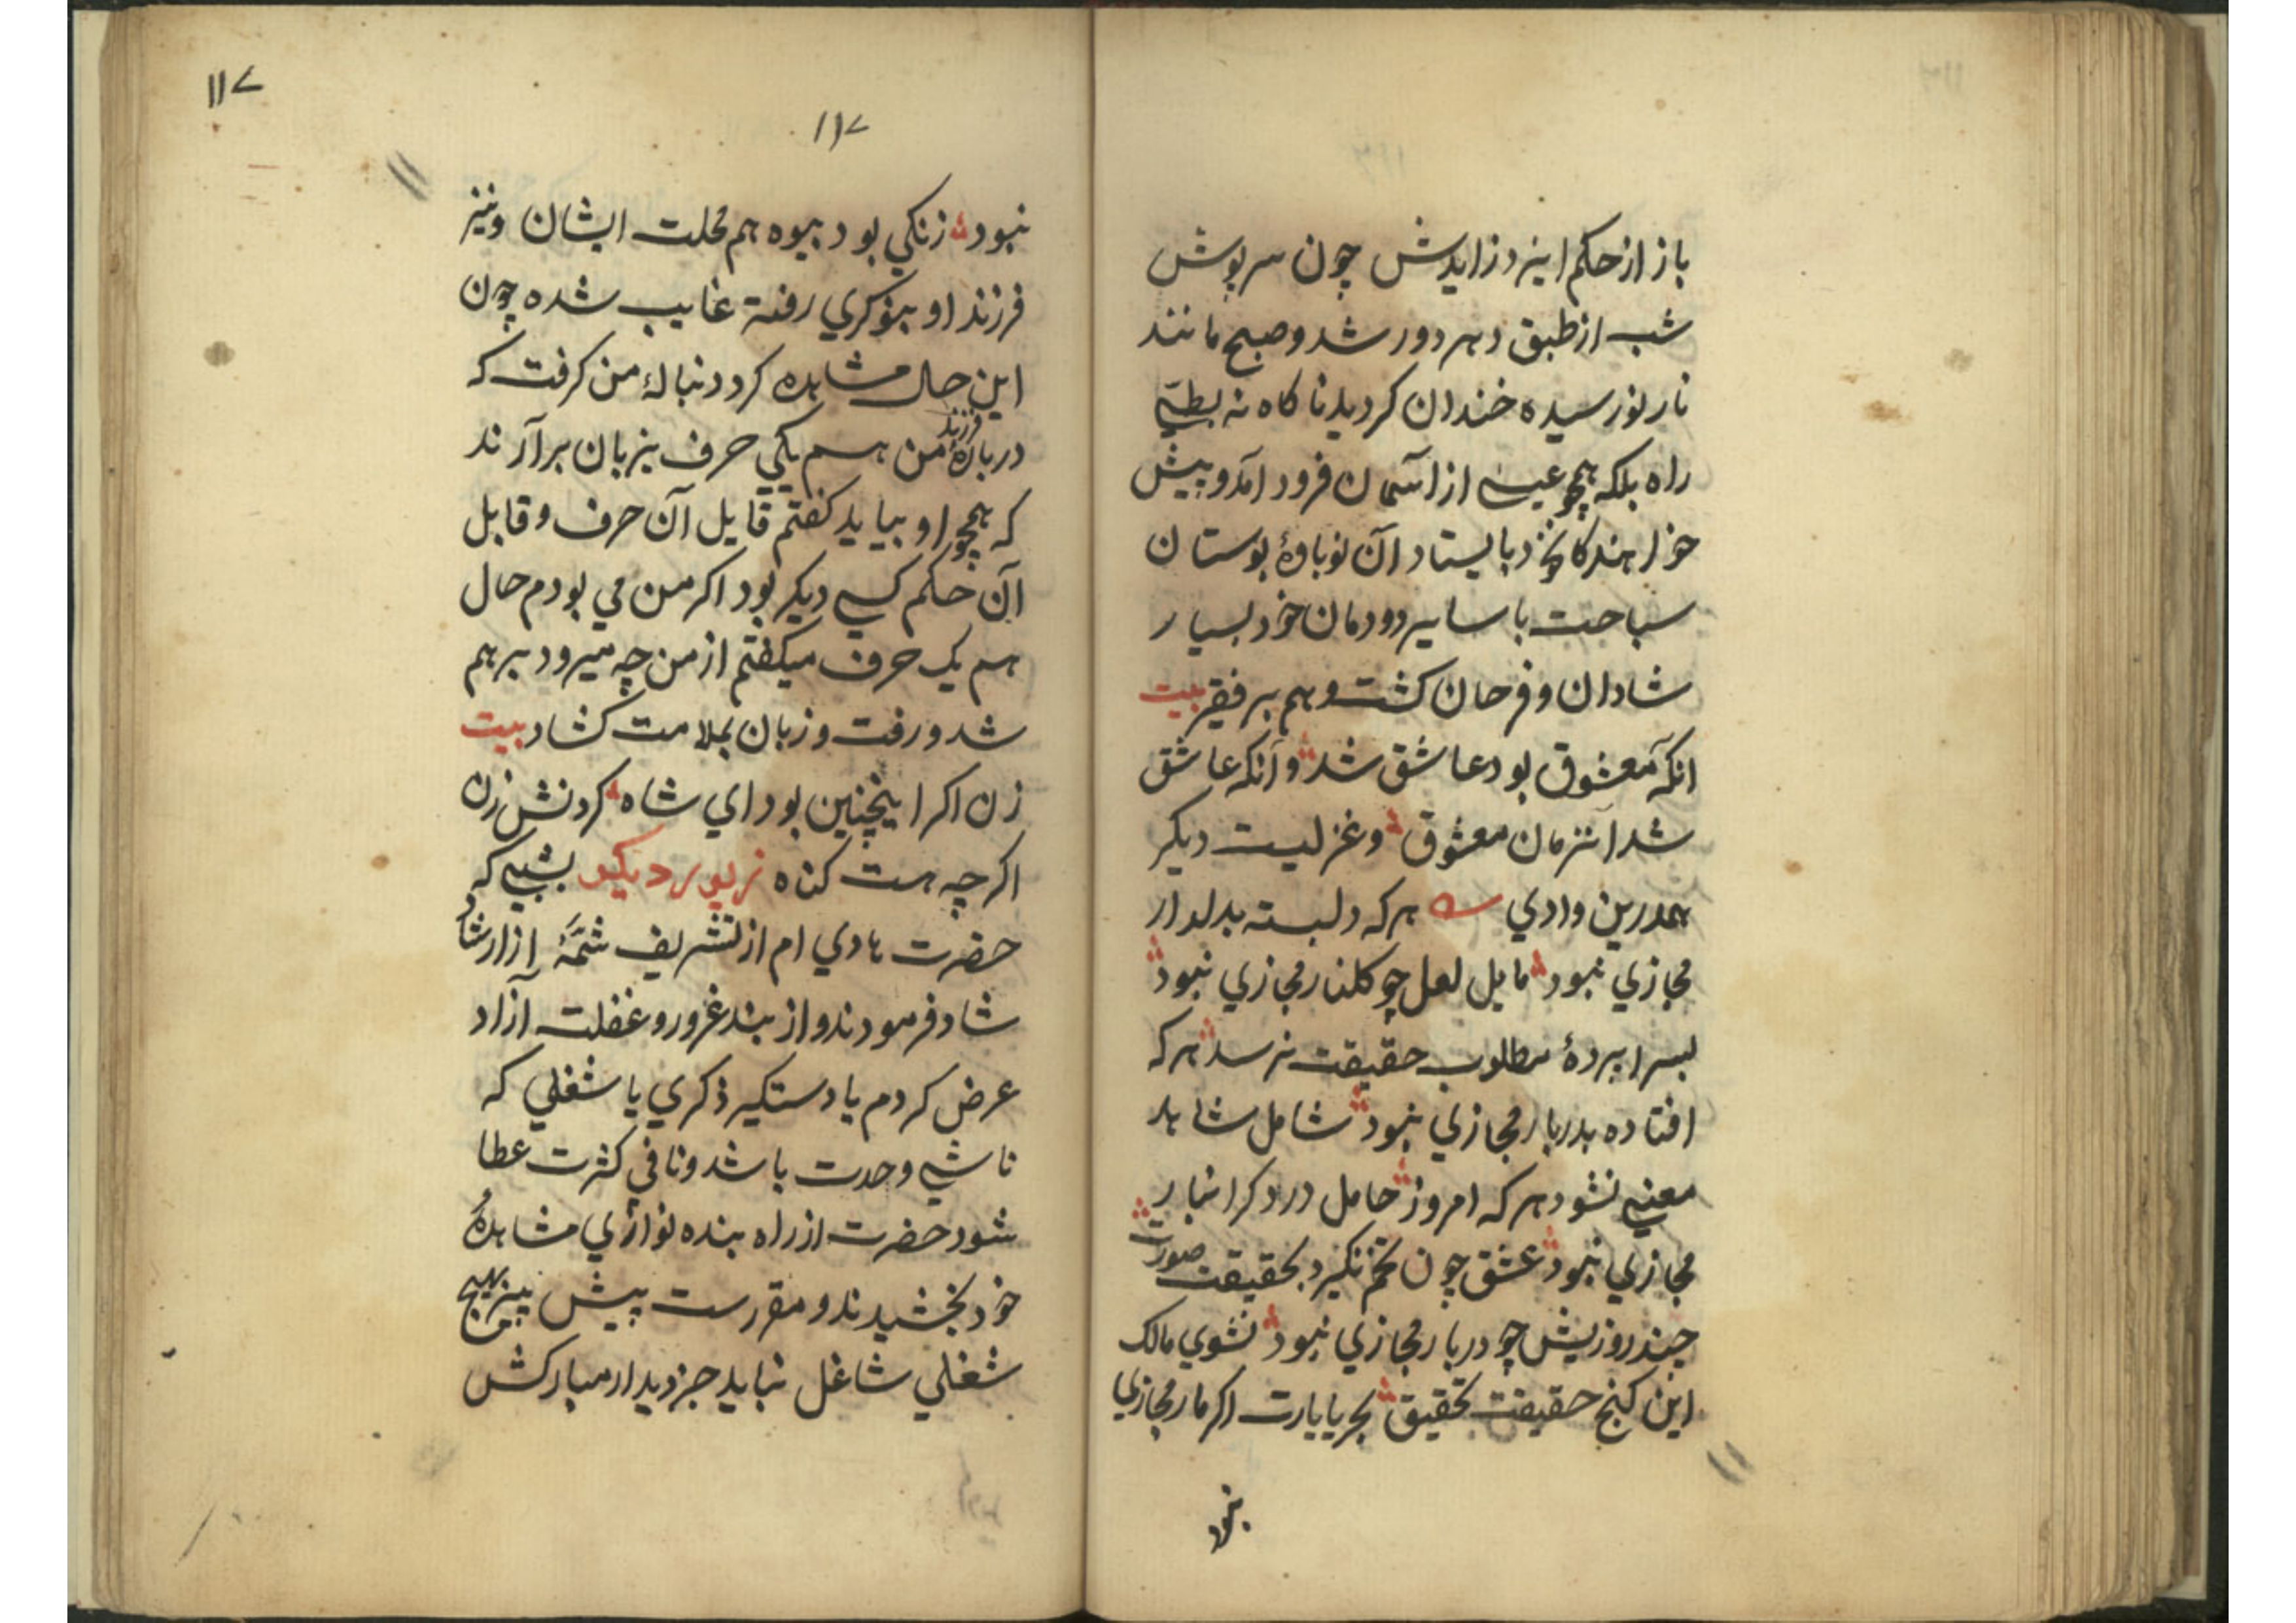 باز از حکم ایزد زایدش چون سرپوش
شب از طبق دهر دور شد و صبح مانند
نار نورسیده خندان کردید ناکاه نه بطیّ
راه بلکه همچو عیسی از آسمان فرود آمد و پیش
خزاهندکا خود بایستاد آن نوباوۀ بوستان
سباحت با سایر دودمان خود بسیار
شادان و فرحان کشت و هم بر فقیر بیت
انکه معشوق بود عاشق شد و آنکه عاشق
شد آنزمان معشوق و غزلیست دیکر
همدرین وادي هر که دلبسته بدلدار
مجازي نبود مایل لعل چو کلنار مجازي نبود
بسراپردۀ مطلوب حقیقت نرسد هر که
افتاده بدربار مجازي نبود شامل شاهد
معنی نشود هر که امروز حامل درد کرانبار
مجازي نبود عشق چون تخم نکیرد بحقیقت صورت
چند روزیش چو دربار مجازي نبود نشوي مالک
این کنج حقیقت تحقیق بحریایارت اکر مار مجازي
نبود
۱۱۷
۱۱۷
نبود زنکي بود بیوه هم محلت ایشان و نیز
فرزند او بنوکري رفته غایب شده چون
این حال مشاهده کرد دنبالۀ من کرفت که
دربارۀ فرزند من هم یکی حرف بزبان برآرند
که همچو او بیاید کفتم قایل آن حرف و قابل
آن حکم کسی دیکر بود اکر من مي بودم حال
هم یک حرف میکفتم از من چه میرود برهم
شد و رفت و زبان بملامت کشاد بیت
زن اکر اینچنین بود اي شاه کردنش زن
اکرچه هست کناه زیور دیکر بشبی که
حضرت هادي ام از تشریف شمّۀ از ارشاد
شاد فرمودند و از بند غرور و غفلت آزاد
عرض کردم یا دستکیر ذکري یا شغلي که
ناشی وحدت باشد و نافي کثرت عطا
شود حضرت از راه بنده نوازي مشاهدۀ
خود بخشیدند و مقررست پیش بیز بهیچ
شغلي شاغل نباید جز دیدار مبارکش